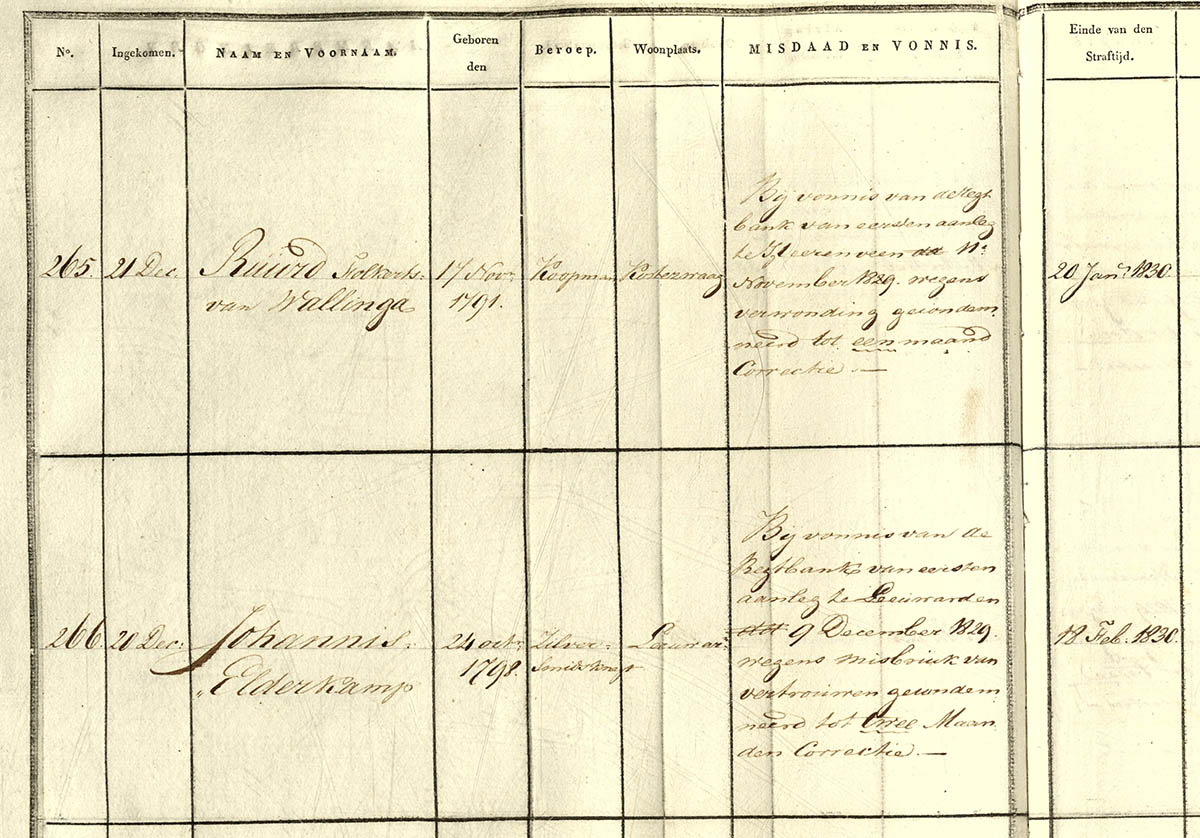 No. Ingekomen. NAAM EN VOORNAAM. Geboren den Beroep. Woonplaats. MISDAAD EN VONNIS. Einde van den Straftijd.
265. 21 Dec. Ruurd Folkerts van Wallinga 17 Nov: 1791. Koopman Kortezwaag
Bij vonnis van de Regt
bank van eersten aanleg
te Heerenveen dd 11
November 1829. wegens
verwonding gecondem
neerd tot een maand
Correctie. —
20 Janu: 1830.
266. 20 Dec: Johannis Elderkamp 24 octr: 1798. Zilver- Smidsknegt Leeuwar:
Bij vonnis van de
Regtbank van eersten
aanleg te Leeuwarden
dd 9 December 1829.
wegens misbruik van
vertrouwen gecondem
neerd tot twee Maan
den Correctie. —
18 Feb. 1830.